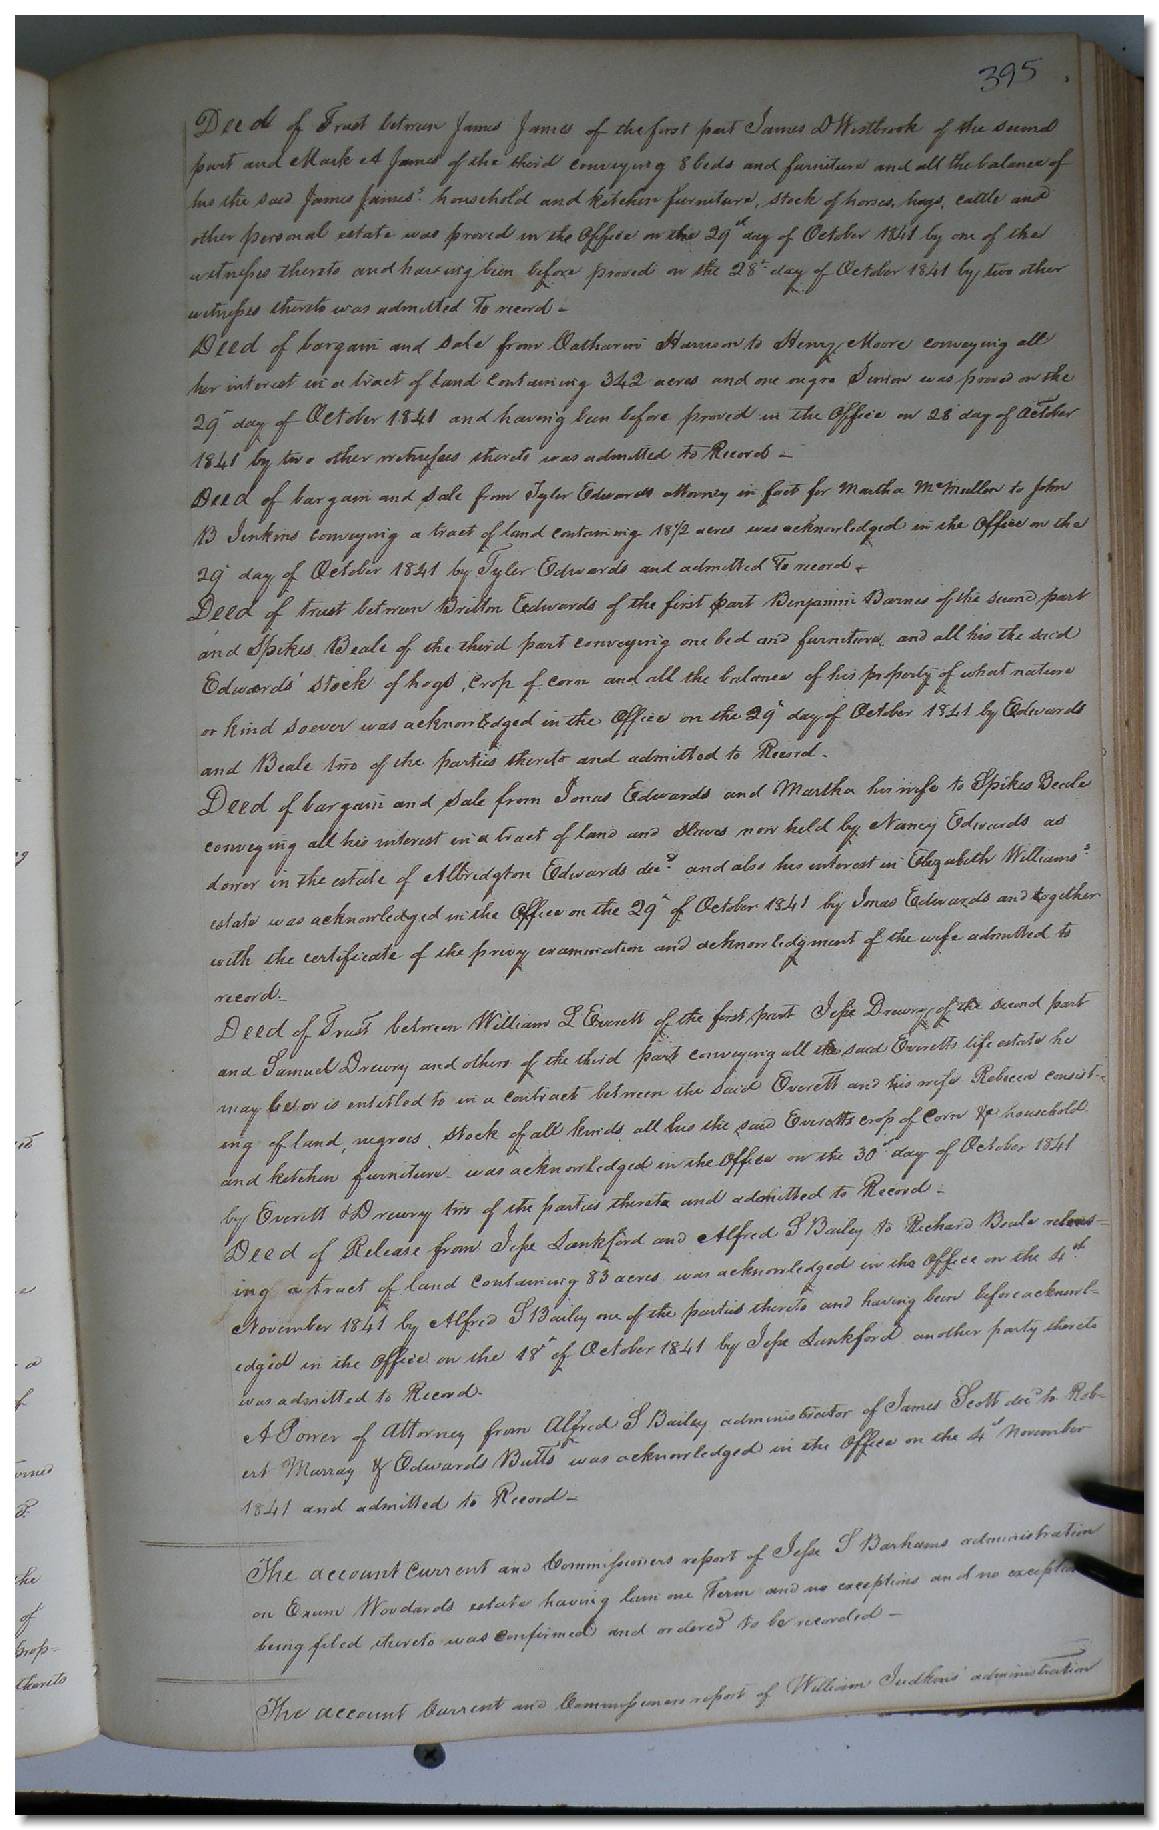 395
Deed of Trust between James James of the first part James D Westbrook of the second
part and Mark A James of the third conveying 8 beds and furniture and all the balance of
his the said James James's household and kitchen furniture, stock of horses, hogs, cattle and
other personal estate was proved in the Office on the 29th day of October 1841 by one of the
witnesses thereto and having been before proved on the 28th day of October 1841 by two other
witnesses thereto was admitted To record -
Deed of bargain and sale from Catharine Harrison to Henry Moore conveying all
her interest in a tract of land containing 342 acres and one negro was proved on the
29th day of October 1841 and having been before proved in the Office on 28 day of October
1841 by two other witnesses thereto was admitted to Record -
Deed of bargain and sale from Tyler Edwards attorney in fact for Martha McMullen to John
B Jenkins conveying a tract of land containing 18 1/2 acres was acknowledged in the Office on the
29 day of October 1841 by Tyler Edwards and admitted To record.
Deed of trust between Britton Edwards of the first part Benjamin Barnes of the second part
and Spikes Beale of the third part conveying one bed and furniture and all his the said
Edwards' stock of hogs, crop of corn and all the balance of his property of what nature
or kind soever was acknowledged in the Office on the 29th day of October 1841 by Edwards
and Beale two of the parties thereto and admitted to Record.
Deed of bargain and sale from Jonas Edwards and Martha his wife to Spikes Beale
conveying all his interest in a tract of land and slaves now held by Nancy Edwards as
dower in the estate of Albridgton Edwards decd and also his interest in Elizabeth Williams's
estate was acknowledged in the Office on the 29th of October 1841 by Jonas Edwards and together
with the certificate of the privy examination and acknowledgment of the wife admitted to
record -
Deed of Trust between William L Everett of the first part Jesse Drewry of the second part
and Samuel Drewry and others of the third part conveying all the said Everetts life estate he
may be or is entitled to in a contract between the said Everett and his wife Rebecca consist-
ing of land, negroes, stock of all kinds all his the said Everetts crop of Corn &c household
and kitchen furniture was acknowledged in the Office on the 30th day of October 1841
by Everett & Drewry two of the parties thereto and admitted to Record -
Deed of Release from Jesse Lankford and Alfred S Bailey to Richard Beale releas=
ing a tract of land containing 83 acres was acknowledged in the Office on the 4th
November 1841 by Alfred S Bailey one of the parties thereto and having been before acknowl-
edged in the Office on the 18th of October 1841 by Jesse Lankford another party thereto
was admitted to Record.
A Power of Attorney from Alfred S Bailey administrator of James Scott decd to Rob-
ert Murray & Edwards Butts was acknowledged in the Office on the 4th November
1841 and admitted to Record -
The account Current and Commissioners report of Jesse S Barhams administration
on Exum Woodards estate having lain one Term and no exceptions and no exceptions
being filed thereto was confirmed and ordered to be recorded -
The account Current and Commissioners report of William Judkins' administration